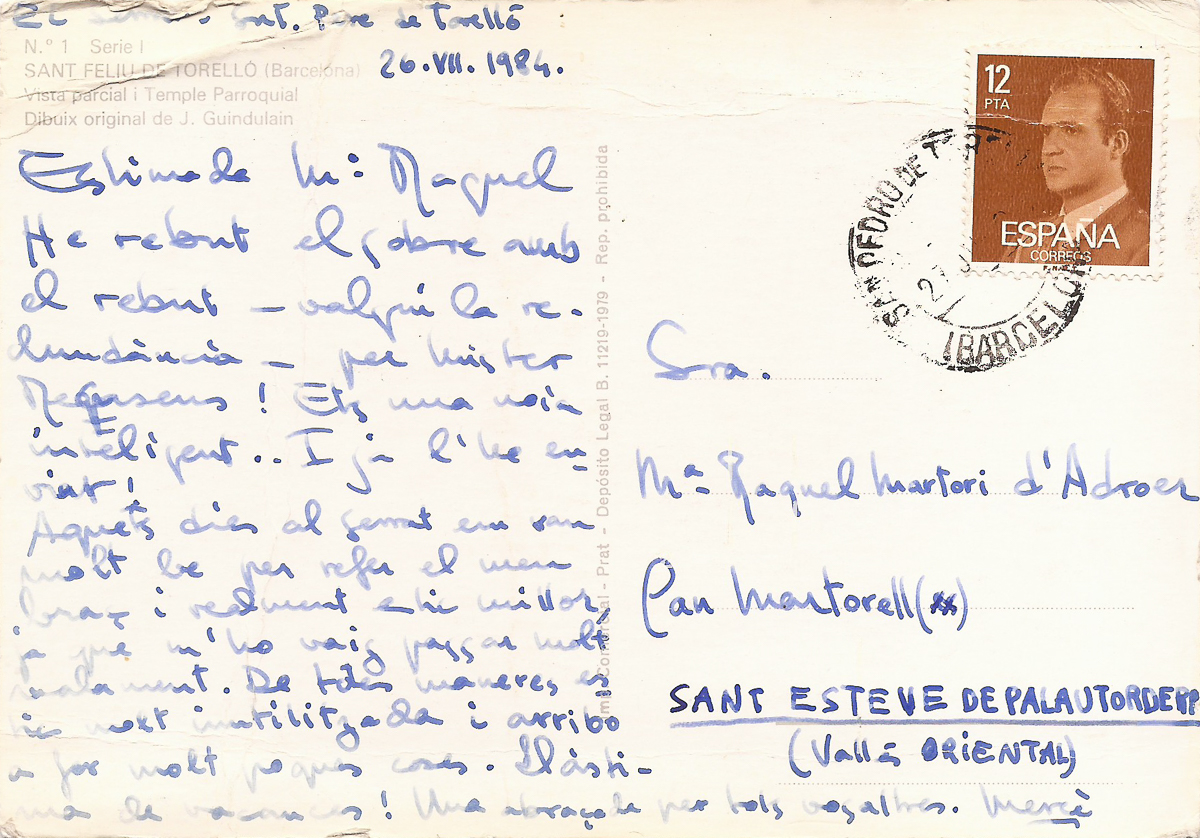 El Serrat - Sant. Pere de Torelló
26.VII.1984.
N.º 1 Serie I
SANT FELIU DE TORELLÓ (Barcelona)
Vista parcial i Temple Parroquial
Dibuix original de J. Guindulain
Estimada Mª Raquel
He rebut el sobre amb
el rebut — valgui la re-
dundància — per mister
Regasens! Ets una noia
intel·ligent.. I ja l'he en
viat!
Aquets dies al serrat em van
molt be per refer el meu
braç i realment estic millor,
ja que m'ho vaig passar molt
malament. De totes maneres es
tic molt inutilitzada i arribo
a fer molt poques coses. Llàsti-
ma de vacances! Una abraçada per tots vosaltres. Mercè
Comercial - Prat - Depósito Legal B. 11219-1979 - Rep. prohibida
12
PTA
ESPAÑA
CORREOS
F.N.M.T.
SAN PEDRO DE T
27
(BARCELONA
Sra.
Mª Raquel Martori d'Adroer
Can Martorell
SANT ESTEVE DE PALAUTORDERA
(Vallés ORIENTAL)